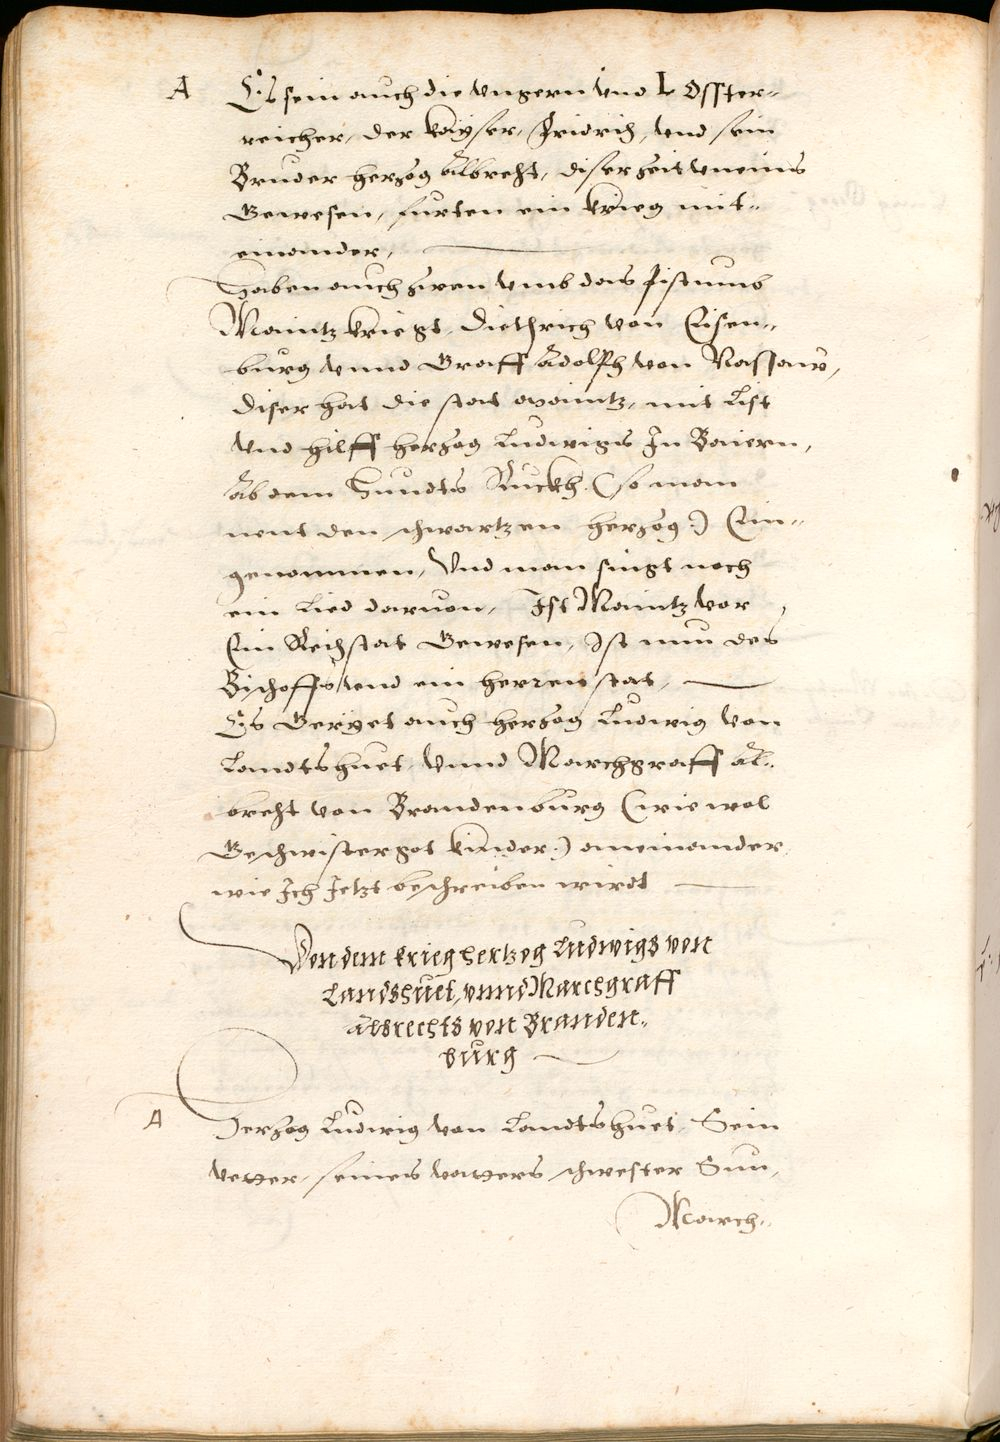 A Es sein auch die Vngern vnd Osster-
reicher, der Kayser, Fridrich, vnd sein
Bruder herzog Albrecht, diser zeit vneins
Gewesen, furten ein krieg mit-
einander,
Haben auch zwen vmb das Pistumb
Maintz kriegt, Diethrich von Eisen-
burg vnnd Graff Adolph von Nassaw,
diser hat die stat Maintz, mit list
vnd hilff herzog Ludwigs In Baiern,
Ab dem Hundts Ruckh (so man
nent den schwartzen herzog:) Ein-
genommen, Vnd man singt noch
ein Lied daruon, Ist Maintz vor,
Ein Reichstat Gewesen, Ist nun des
Bischoffs vnd ein herren stat,
Es Geriet auch herzog Ludwig von
Landtshuet, vnnd Marchgraff Al-
brecht von Brandenburg (wie wol
Geschwistergot kinder:) aneinander
wie Ich Jetzt beschreiben wirdt
Von dem krieg hertzog Ludwigs von
Landshuet, vnnd Marchgraff
Albrechts von Branden-
burg
A Herzog Ludwig von Landtshuet, Sein
vetter, seines vatters schwester Sun,
March-